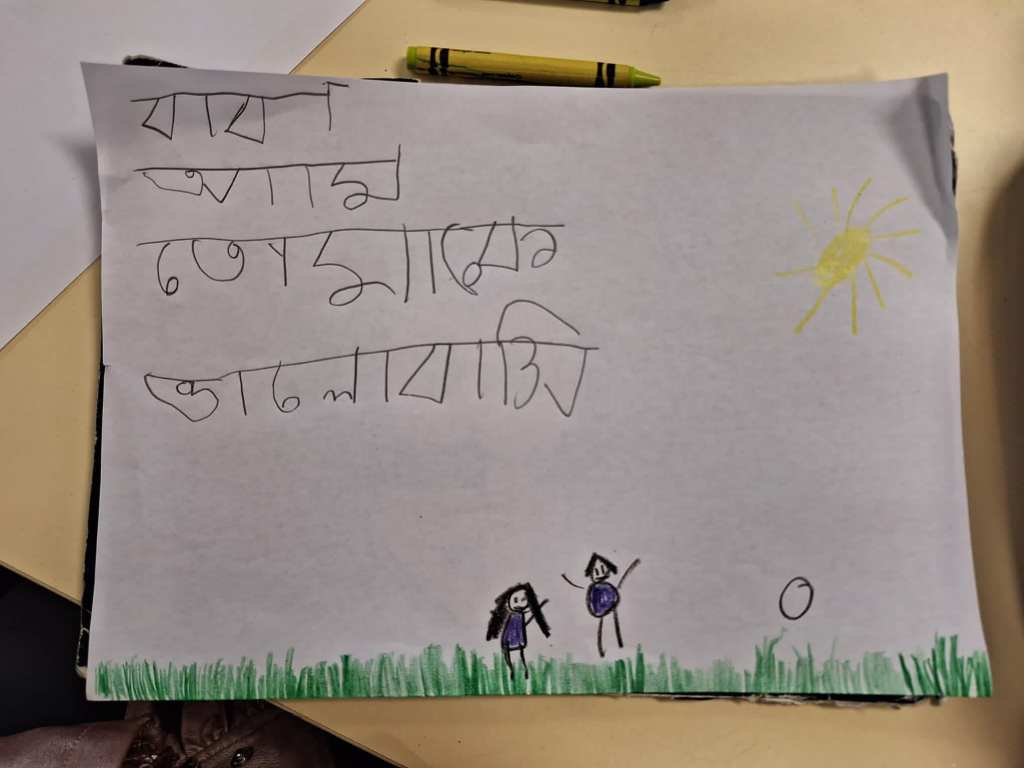 বাবা
আমি
তোমাকে
ভালোবাসি